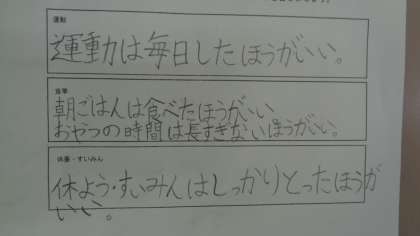 運動
運動は毎日したほうがいい。
食事
朝ごはんは食べたほうがいい
おやつの時間は長すぎないほうがいい。
休養・すいみん
休よう・すいみんはしっかりとったほうが
いい。